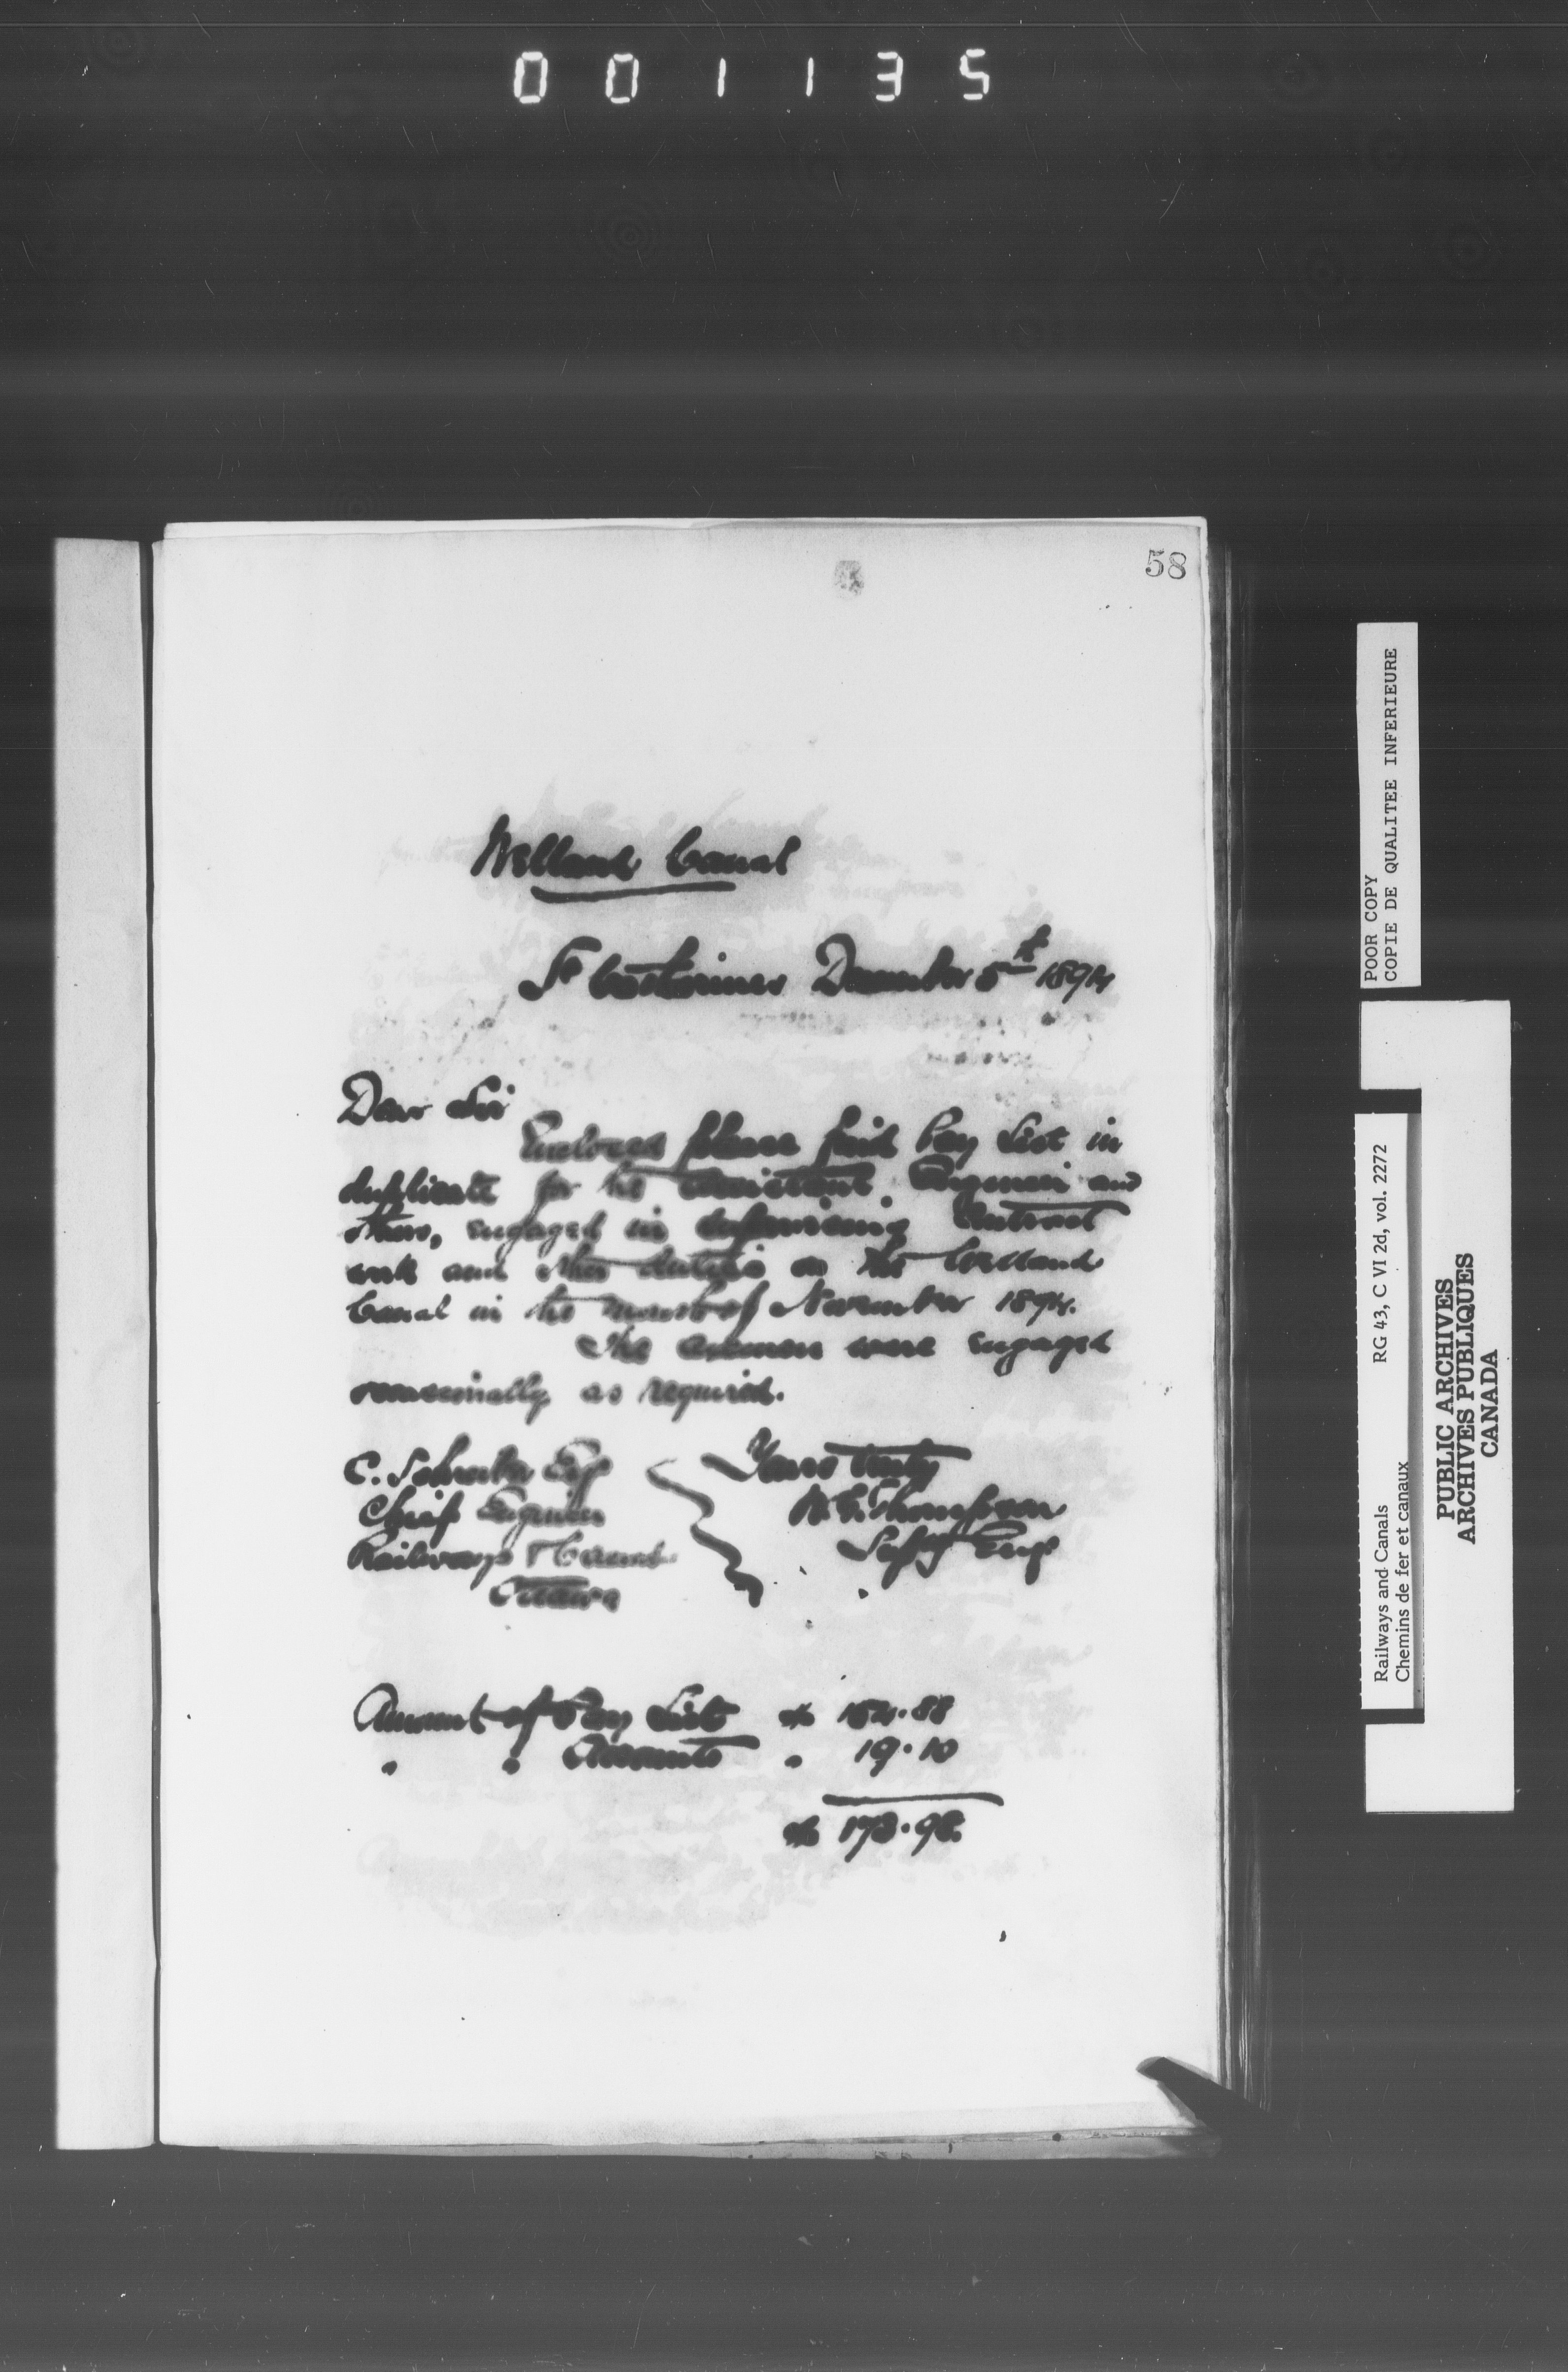 001135
58
Welland Canal
St Catharines December 5th 1894
Dear Sir
Enclosed please find Pay List in
duplicate for the assistant Engineer and
others, engaged in supervising Contract
work and other duties on the Welland
Canal in the month of November 1894.
The axemen were engaged
occasionally as required.
C. Schreiber Esq
Chief Engineer
Railways & Canals
Ottawa
Yours truly
W. G. Thompson
Supg Engr
Amount of Pay List $ 154.88
" " Accounts " 19.10
$ 173.98
POOR COPY
COPIE DE QUALITEE INFERIEURE
RG 43, C VI 2d, vol. 2272
Railways and Canals
Chemins de fer et canaux
PUBLIC ARCHIVES
ARCHIVES PUBLIQUES
CANADA